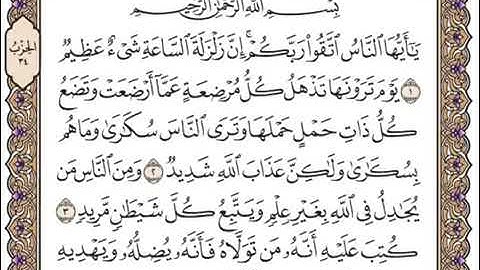 بِسْمِ اللَّهِ الرَّحْمَٰنِ الرَّحِيمِ
الحِزْبُ
٣٤
يَٰٓأَيُّهَا ٱلنَّاسُ ٱتَّقُوا۟ رَبَّكُمْ ۚ إِنَّ زَلْزَلَةَ ٱلسَّاعَةِ شَىْءٌ عَظِيمٌ
١ يَوْمَ تَرَوْنَهَا تَذْهَلُ كُلُّ مُرْضِعَةٍ عَمَّآ أَرْضَعَتْ وَتَضَعُ
كُلُّ ذَاتِ حَمْلٍ حَمْلَهَا وَتَرَى ٱلنَّاسَ سُكَٰرَىٰ وَمَا هُم
بِسُكَٰرَىٰ وَلَٰكِنَّ عَذَابَ ٱللَّهِ شَدِيدٌ ٢ وَمِنَ ٱلنَّاسِ مَن
يُجَٰدِلُ فِى ٱللَّهِ بِغَيْرِ عِلْمٍ وَيَتَّبِعُ كُلَّ شَيْطَٰنٍ مَّرِيدٍ ٣
كُتِبَ عَلَيْهِ أَنَّهُۥ مَن تَوَلَّاهُ فَأَنَّهُۥ يُضِلُّهُۥ وَيَهْدِيهِ